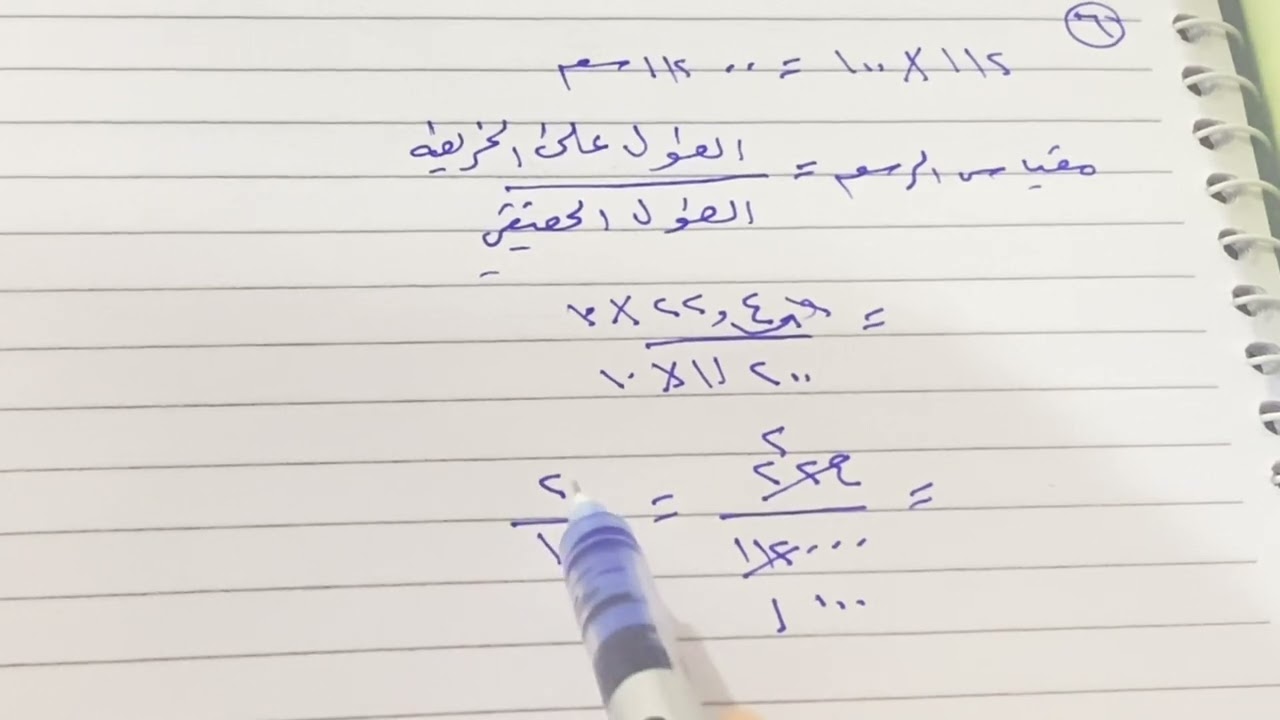 ٦
١١٢ × ١٠٠ = ١١٢٠٠ سم
مقياس الرسم = الطول على الخريطة
الطول الحقيقي
= ٢٢,٤ × ١٠
١١٢٠٠ × ١٠
٢
= ٢٢٤ = ٢
١١٢٠٠٠ ١
١٠٠٠